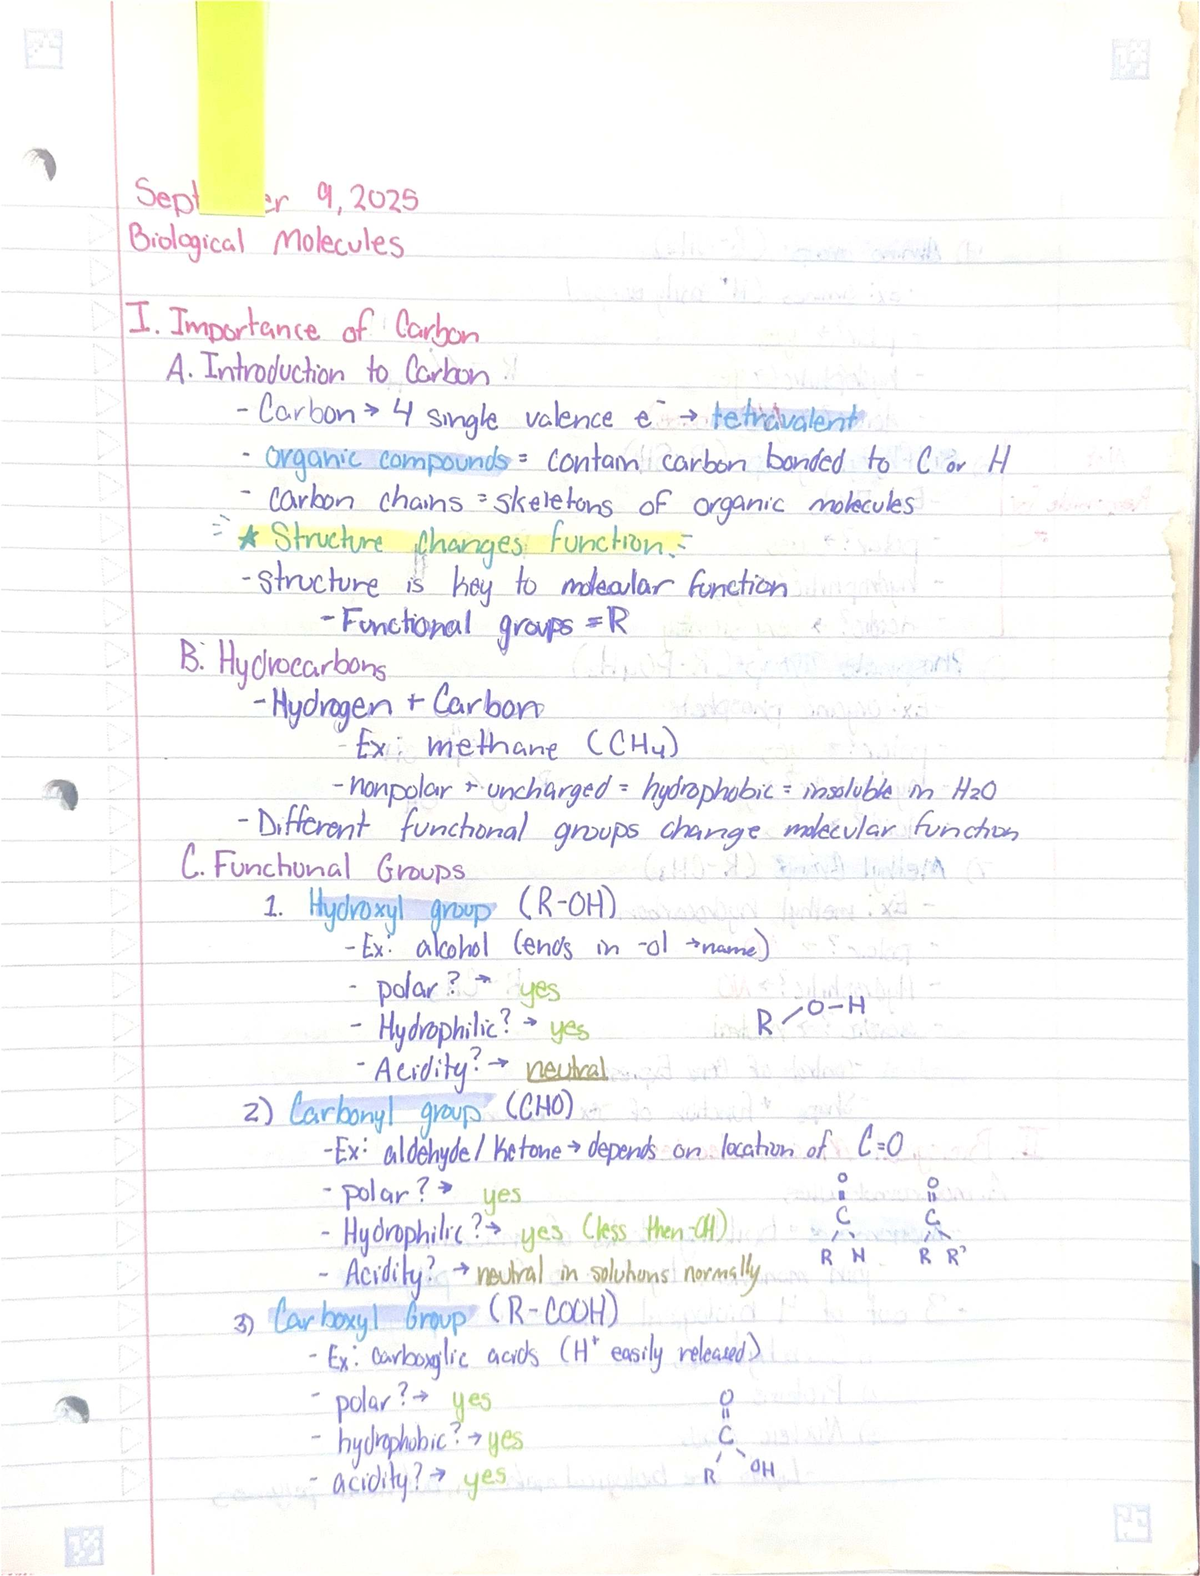 Sept er 9, 2025
Biological Molecules
I. Importance of Carbon
A. Introduction to Carbon
- Carbon → 4 single valence e⁻ → tetravalent
- organic compounds = contain carbon bonded to C or H
- carbon chains = skeletons of organic molecules
★ Structure changes function.
- structure is key to molecular function
- Functional groups = R
B. Hydrocarbons
- Hydrogen + Carbon
- Ex: methane (CH4)
- nonpolar + uncharged = hydrophobic = insoluble in H2O
- Different functional groups change molecular function
C. Functional Groups
1. Hydroxyl group (R-OH)
- Ex: alcohol (ends in -ol → name)
- polar? → yes
- Hydrophilic? → yes
R O-H
- Acidity? → neutral
2) Carbonyl group (CHO)
- Ex: aldehyde / Ketone → depends on location of C=O
- polar? → yes
O O
- Hydrophilic? → yes (less then -OH)
C C
R H R R'
- Acidity? → neutral in solutions normally
3) Carboxyl Group (R-COOH)
- Ex: carboxylic acids (H⁺ easily released)
- polar? → yes
O
- hydrophobic? → yes
C
- acidity? → yes
R OH